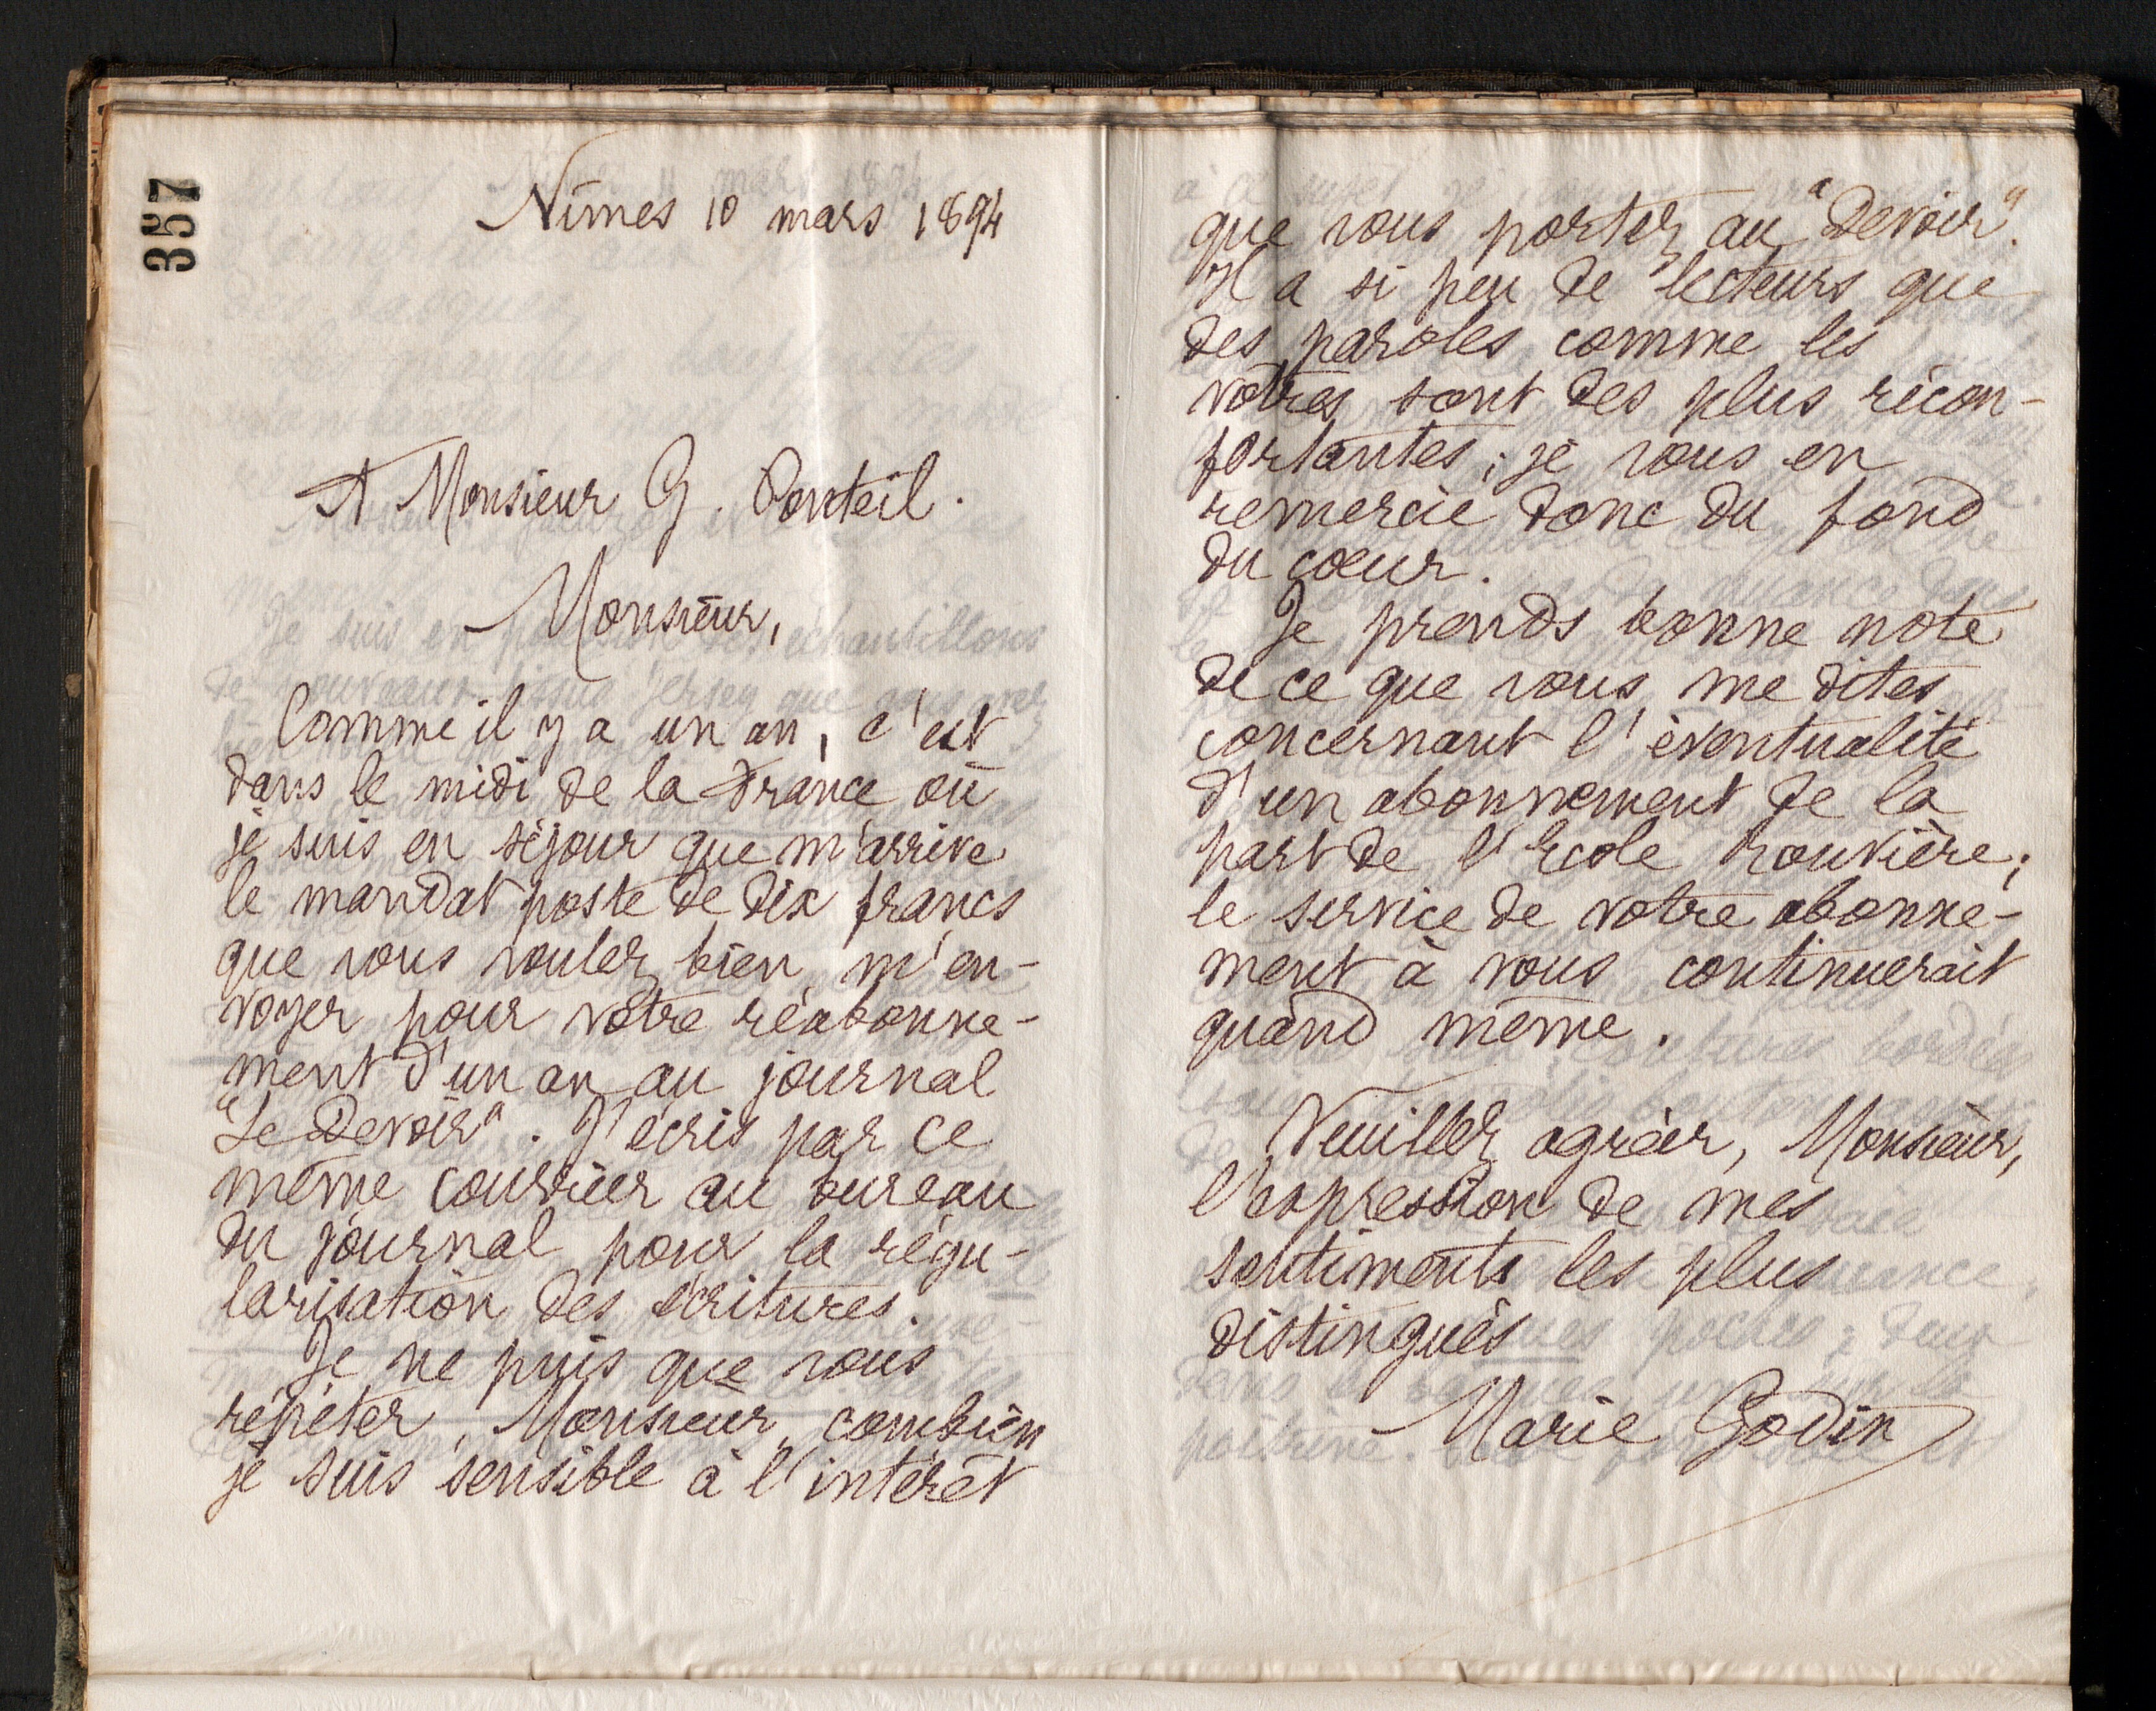 357
Nîmes 10 mars 1894
A Monsieur G. Ponteil.
Monsieur,
Comme il y a un an, c'est
dans le midi de la France où
je suis en séjour que m'arrive
le mandat poste de dix francs
que vous voulez bien m'en-
voyer pour votre réabonne-
ment d'un an au journal
"Le Devoir". J'écris par ce
même courrier au bureau
du journal pour la régu-
larisation des écritures.
Je ne puis que vous
répéter, Monsieur, combien
je suis sensible à l'intérêt
que vous portez au "Devoir".
Il a si peu de lecteurs que
des paroles comme les
vôtres sont des plus récon-
fortantes; je vous en
remercie donc du fond
du coeur.
Je prends bonne note
de ce que vous me dites
concernant l'éventualité
d'un abonnement de la
part de l'Ecole Rouvière;
le service de votre abonne-
ment à vous continuerait
quand même.
Veuillez agréer, Monsieur,
l'expression de mes
sentiments les plus
distingués
Marie Godin